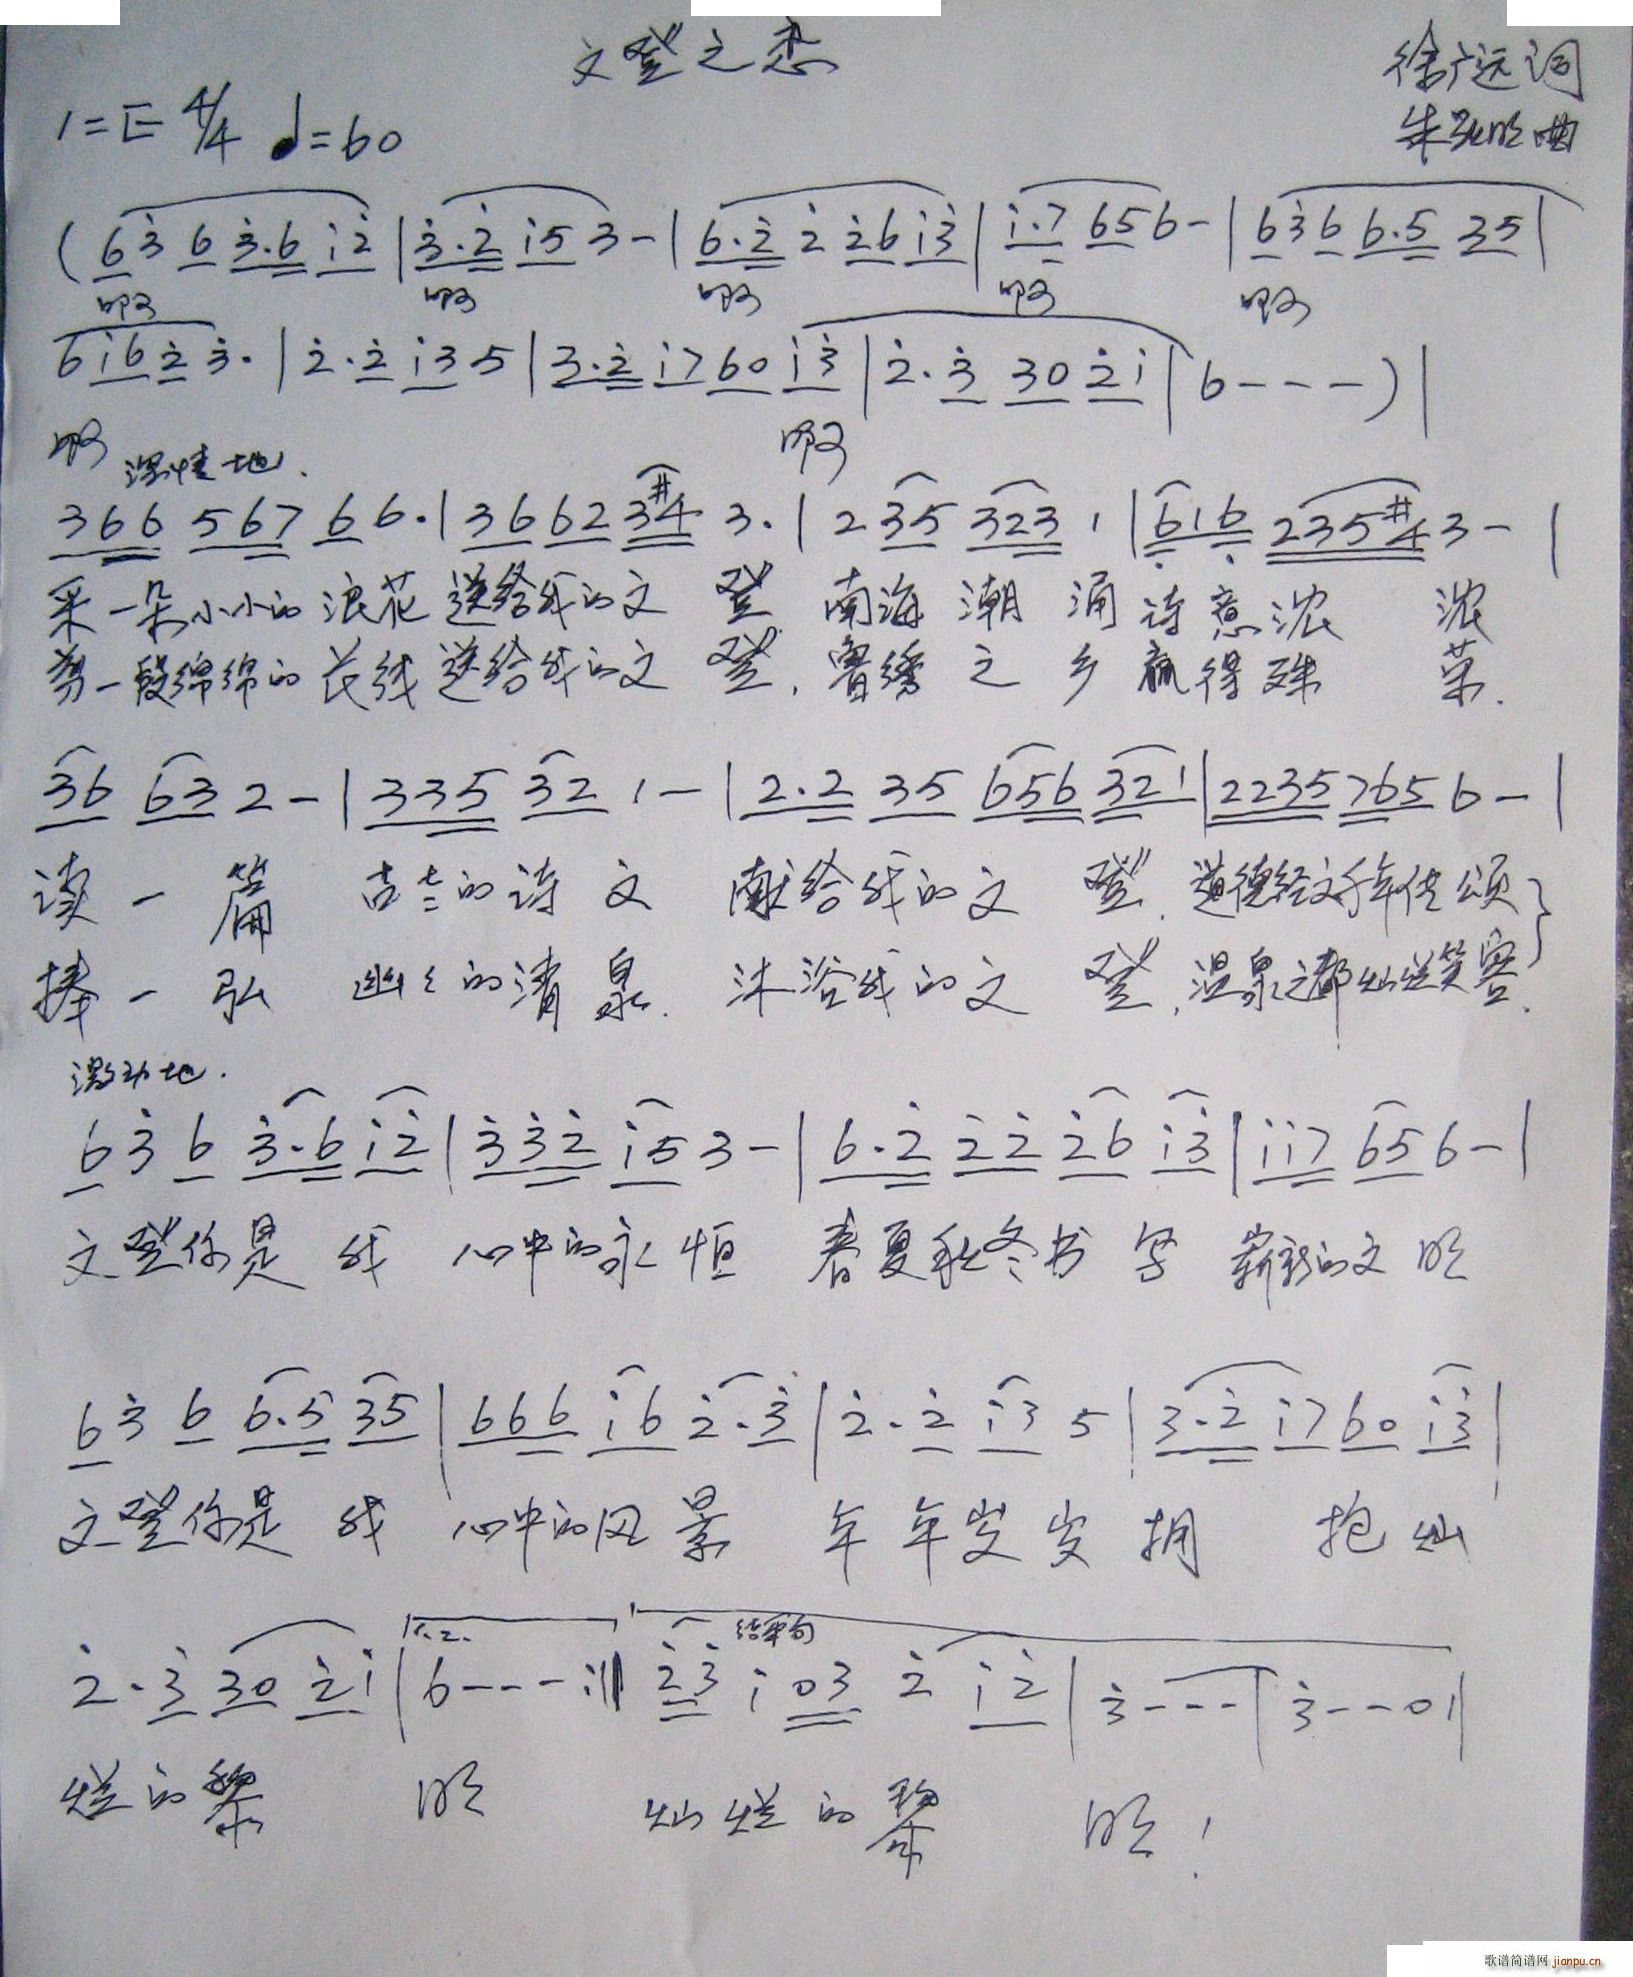 文登之恋
徐广远词
1=E 4/4 ♩=60
曲
(6 3̇ 6 3̇.6 i 2̇ | 3̇.2̇ i 5 3 - | 6.2̇ 2̇ 2̇ 6 i 3̇ | i.7 6 5 6 - | 6 3̇ 6 6.5 3 5 |
啊 啊 啊 啊 啊
6 i 6 2̇ 3̇. | 2̇.2̇ i 3 5 | 3.2̇ i 7 6 0 i 3̇ | 2̇.3̇ 3 0 2̇ i | 6 - - - ) |
啊 啊
深情地.
3 6 6 5 6 7 6 6. | 3 6 6 2 3 #4 3. | 2 3 5 3 2 3 1 | 6̣ 1 6̣ 2 3 5 #4 3 - |
采一朵小小的浪花送给我的文登 南海潮涌诗意浓 浓
剪一段绵绵的长线送给我的文登,鲁绣之乡赢得殊 荣.
3 6 6 3 2 - | 3 3 5 3 2 1 - | 2.2 3 5 6 5 6 3 2 1 | 2 2 3 5 7 6 5 6 - |
读一篇 古老的诗文 献给我的文登,道德经文千年传颂
捧一弘 幽幽的清泉. 沐浴我的文登,温泉之都灿烂笑容.
激动地.
6 3̇ 6 3̇.6 i 2̇ | 3̇ 3̇ 2̇ i 5 3 - | 6.2̇ 2̇ 2̇ 2̇ 6 i 3̇ | i i 7 6 5 6 - |
文登你是我 心中的永恒 春夏秋冬书写 崭新的文明
6 3̇ 6 6.5 3 5 | 6 6 6 i 6 2̇.3̇ | 2̇.2̇ i 3 5 | 3.2̇ i 7 6 0 i 3̇ |
文登你是我 心中的风景 年年岁岁拥 抱灿
1.2. 结束句
2̇.3̇ 3 0 2̇ i | 6 - - - :‖ 2̇ 3̇ i 0 3 2̇ i 2̇ | 3̇ - - - | 3̇ - - 0 ‖
烂的黎 明 灿烂的黎 明!
歌谱简谱网 jianpu.cn